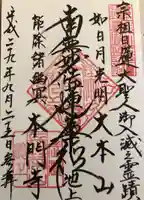 宗祖日蓮大聖人御滅之霊蹟
如日月光明
大本山
南無妙法蓮華経
池上
能除諸幽冥
本門寺
平成二十九年九月二十三日